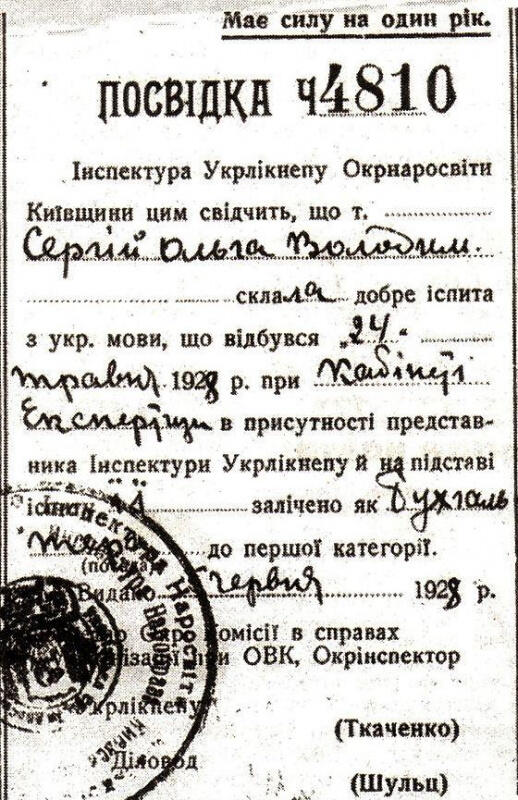 Має силу на один рік.
ПОСВІДКА Ч 4810
Інспектура Укрлікнепу Окрнаросвіти
Київщини цим свідчить, що т.
Сергій Ольга Володим.
склала добре іспита
з укр. мови, що відбувся „24“
травня 1928 р. при Кабінеті
Експертизи в присутності представ-
ника Інспектури Укрлікнепу й на підставі
залічено як Бухгаль
тер до першої категорії.
(посада)
Видано червня 1928 р.
комісії в справах
при ОВК, Окрінспектор
Укрлікнепу
(Ткаченко)
Діловод
(Шульц)